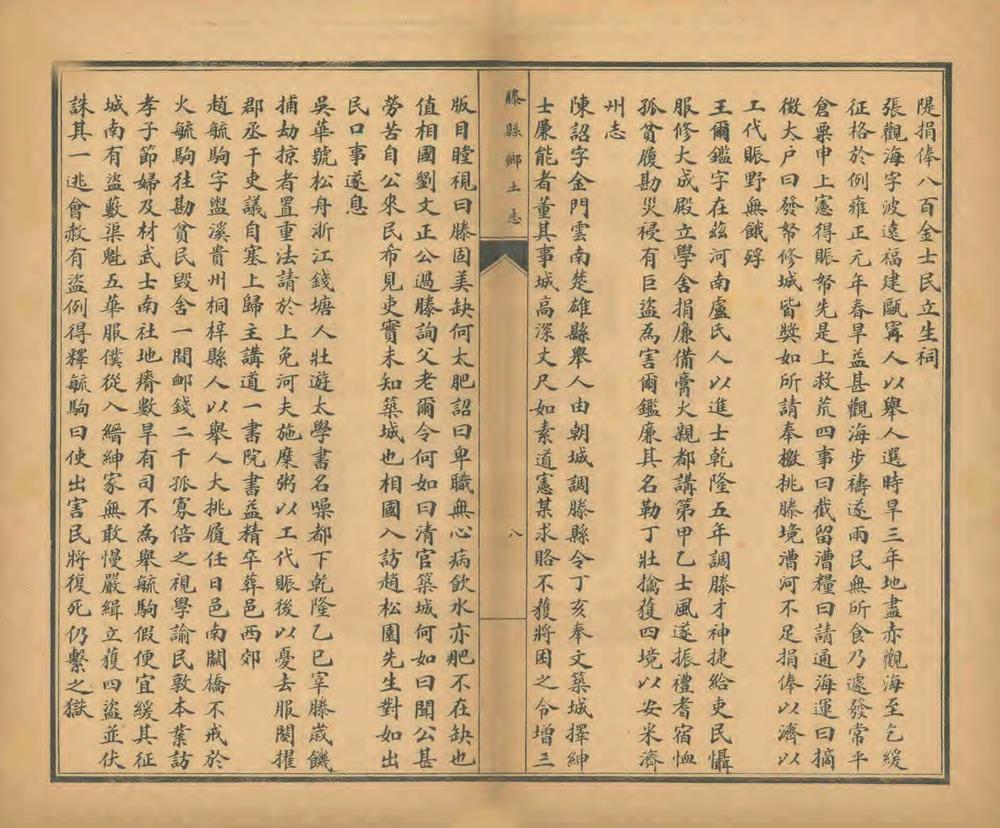 隄捐俸八百金士民立生祠
張觀海字波遠福建甌寗人以舉人選時旱三年地盡赤觀海至乞緩
征格於例雍正元年春旱益甚觀海步禱遂雨民無所食乃遽發常平
倉粟申上憲得賑帑先是上救荒四事曰截留漕糧曰請通海運曰摘
徵大户曰發帑修城皆奬如所請奉檄挑滕境漕河不足捐俸以濟以
工代賑野無餓殍
王爾鑑字在茲河南盧氏人以進士乾隆五年調滕才神捷給吏民懾
服修大成殿立學舍捐廉備膏火親都講第甲乙士風遂振禮耆宿恤
孤貧履勘災祲有巨盗為害爾鑑廉其名勒丁壯擒獲四境以安采濟
州志
陳詔字金門雲南楚雄縣舉人由朝城調滕縣令丁亥奉文築城擇紳
士廉能者董其事城高深丈尺如素道憲某求賂不獲將困之令增三
滕縣鄉土志
八
版目瞠視曰滕固美缺何太肥詔曰卑職無心病飲水亦肥不在缺也
值相國劉文正公過滕詢父老爾令何如曰清官築城何如曰聞公甚
勞苦自公來民希見吏實未知築城也相國入訪趙松園先生對如出
民口事遂息
吳華號松舟浙江錢塘人壯遊太學書名噪都下乾隆乙巳宰滕歲饑
捕劫掠者置重法請於上免河夫施糜粥以工代賑後以憂去服闋擢
郡丞干吏議自塞上歸主講道一書院書益精卒葬邑西郊
趙毓駒字盥溪貴州桐梓縣人以舉人大挑履任日邑南關橋不戒於
火毓駒往勘貧民毀舍一間䘏錢二千孤寡倍之視學諭民敦本業訪
孝子節婦及材武士南社地瘠數旱有司不為舉毓駒假便宜緩其征
城南有盜藪渠魁五華服僕從入縉紳家無敢慢嚴緝立獲四盜並伏
誅其一逃會赦有盜例得釋毓駒曰使出害民將復死仍繫之獄